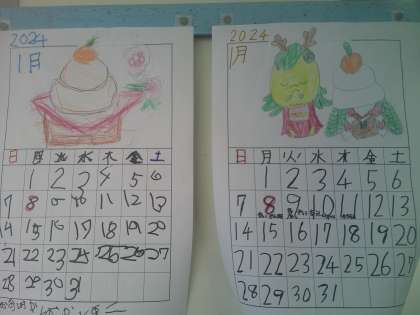 2024
1月
日 月 火 水 木 金 土
1 2 3 4 5 6
7 8 9 10 11 12 13
14 15 16 17 18 19 20
21 22 23 24 25 26 27
28 29 30 31
2024
1月
日 月 火 水 木 金 土
1 2 3 4 5 6
7 8 9 10 11 12 13
14 15 16 17 18 19 20
21 22 23 24 25 26 27
28 29 30 31